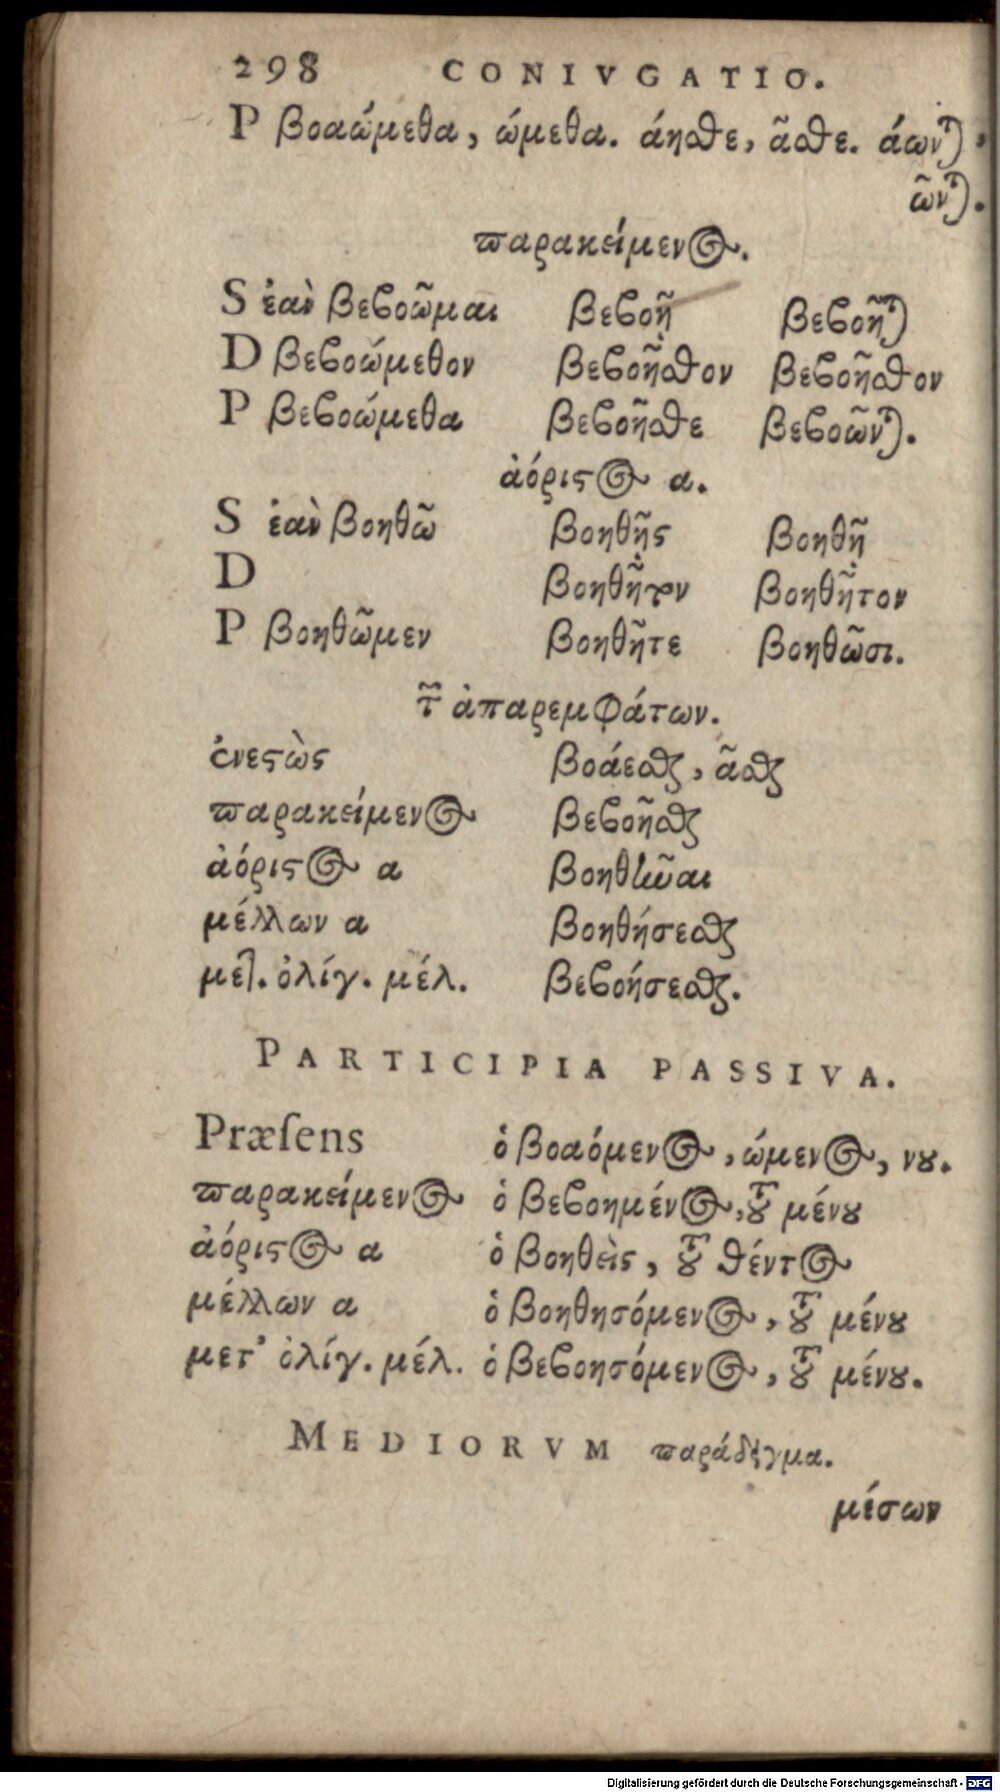 298 CONIVGATIO.
P βοαώμεθα, ώμεθα. άησθε, ᾶσθε. άωνται,
ῶνται.
παρακείμενος.
S ἐὰν βεβοῶμαι βεβοῇ βεβοῆται
D βεβοώμεθον βεβοῆσθον βεβοῆσθον
P βεβοώμεθα βεβοῆσθε βεβοῶνται.
ἀόριστος α.
S ἐὰν βοηθῶ βοηθῇς βοηθῇ
D βοηθῆτον βοηθῆτον
P βοηθῶμεν βοηθῆτε βοηθῶσι.
τῶν ἀπαρεμφάτων.
ἐνεστὼς βοάεσθαι, ᾶσθαι
παρακείμενος βεβοῆσθαι
ἀόριστος α βοηθῆναι
μέλλων α βοηθήσεσθαι
μετ. ὀλίγ. μέλ. βεβοήσεσθαι.
PARTICIPIA PASSIVA.
Præſens ὁ βοαόμενος, ώμενος, νου.
παρακείμενος ὁ βεβοημένος, τοῦ μένου
ἀόριστος α ὁ βοηθεὶς, τοῦ θέντος
μέλλων α ὁ βοηθησόμενος, τοῦ μένου
μετ' ὀλίγ. μέλ. ὁ βεβοησόμενος, τοῦ μένου.
MEDIORVM παράδειγμα.
μέσων
Digitalisierung gefördert durch die Deutsche Forschungsgemeinschaft - DFG